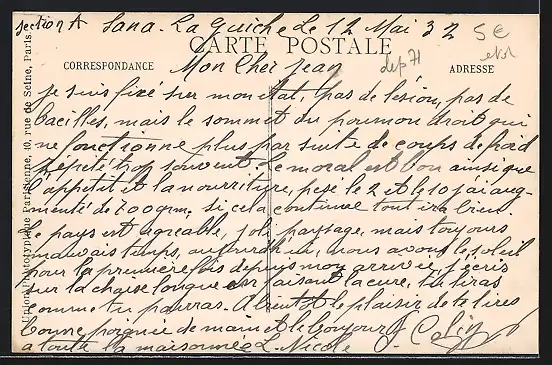 section A Sana. La Guiche Le 12 Mai 32 5€
CARTE POSTALE
dep 71
CORRESPONDANCE ADRESSE
Mon Cher Jean
je suis fixé sur mon état, pas de lésion, pas de
bacilles, mais le sommet du poumon droit qui
ne fonctionne plus par suite de coups de froid
répété trop souvent. Le moral est bon ainsi que
l'appétit et la nourriture, pesé le 2 et le 10 j'ai aug-
menté de 700 grm. si cela continue tout ira bien.
le pays est agréable, joli paysage, mais toujours
mauvais temps, aujourd'hui, nous avons le soleil
pour la première fois depuis mon arrivée, j'écris
sur la chaise longue en faisant la cure, tu liras
comme tu pourras. A bientôt le plaisir de te lires
bonne poignée de main et le bonjour G. Colin
a toute la maisonnée L. Nicole
Union Phototypique Parisienne, 10, rue de Seine, Paris.